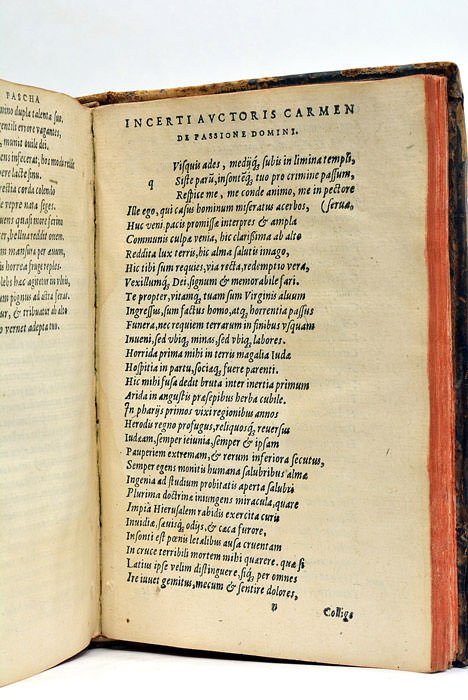 PASCHA
mino dupla talenta suo.
gentili errore vagantes,
, monit ouile dii.
ens infecerat, hos modo tolle
pere lacte sinu.
restia corda colendo
de vepre nata seges.
uens quasi more ferino
ter, bellua reddit onem.
um mansura per auum,
is horrea fruge replet.
lebs hac agitetur in vlnis,
um pignus ad alta ferat.
ur, & tribuat ab alto
o vernet adepta tuo.
INCERTI AVCTORIS CARMEN
DE PASSIONE DOMINI.
Visquis ades, medijq́; subis in limina templi,
q Siste parū, insontēq́; tuo pro crimine passum,
Respice me, me conde animo, me in pectore
Ille ego, qui casus hominum miseratus acerbos, (serua,
Huc veni pacis promissæ interpres & ampla
Communis culpæ venia, hic clarissima ab alto
Reddita lux terris, hic alma salutis imago,
Hic tibi sum requies, via recta, redemptio vera,
Vexillumq́; Dei, signum & memorabile fari.
Te propter, vitamq́; tuam sum Virginis aluum
Ingressus, sum factus homo, atq́; horrentia passus
Funera, nec requiem terrarum in finibus vsquam
Inueni, sed vbiq́; minas, sed vbiq́; labores.
Horrida prima mihi in terris magalia Iudæ
Hospitia in partu, sociaq́; fuere parenti.
Hic mihi fusa dedit bruta inter inertia primum
Arida in angustis præsepibus herba cubile.
In pharijs primos vixi regionibus annos
Herodis regno profugus, reliquosq́; reuersus
Iudæam, semper ieiunia, semper & ipsam
Pauperiem extremam, & rerum inferiora secutus,
Semper egens monitis humana salubribus almæ
Ingenia ad studium probitatis aperta salubris
Plurima doctrinæ iniungens miracula, quare
Impia Hierusalem rabidis exercita curis
Inuidiæ, sæuisq́; odijs, & cæca furore,
Insonti est pœnis letalibus ausa cruentam
In cruce terribili mortem mihi quærere. quæ si
Latius ipse velim distinguere, siq́; per omnes
Ire iuuet gemitus, mecum & sentire dolores,
v
Collige